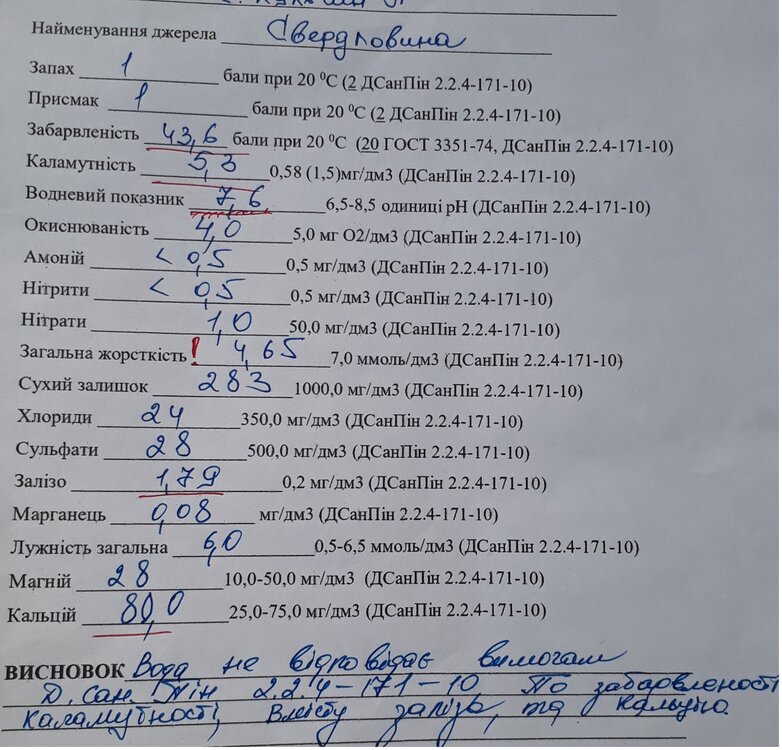 Найменування джерела Свердловина
Запах 1 бали при 20 ⁰С (2 ДСанПін 2.2.4-171-10)
Присмак 1 бали при 20 ⁰С (2 ДСанПін 2.2.4-171-10)
Забарвленість 43,6 бали при 20 ⁰С (20 ГОСТ 3351-74, ДСанПін 2.2.4-171-10)
Каламутність 5,3 0,58 (1,5)мг/дм3 (ДСанПін 2.2.4-171-10)
Водневий показник 7,6 6,5-8,5 одиниці рН (ДСанПін 2.2.4-171-10)
Окиснюваність 4,0 5,0 мг О2/дм3 (ДСанПін 2.2.4-171-10)
Амоній < 0,5 0,5 мг/дм3 (ДСанПін 2.2.4-171-10)
Нітрити < 0,5 0,5 мг/дм3 (ДСанПін 2.2.4-171-10)
Нітрати 1,0 50,0 мг/дм3 (ДСанПін 2.2.4-171-10)
Загальна жорсткість ! 4,65 7,0 ммоль/дм3 (ДСанПін 2.2.4-171-10)
Сухий залишок 283 1000,0 мг/дм3 (ДСанПін 2.2.4-171-10)
Хлориди 24 350,0 мг/дм3 (ДСанПін 2.2.4-171-10)
Сульфати 28 500,0 мг/дм3 (ДСанПін 2.2.4-171-10)
Залізо 1,79 0,2 мг/дм3 (ДСанПін 2.2.4-171-10)
Марганець 0,08 мг/дм3 (ДСанПін 2.2.4-171-10)
Лужність загальна 6,0 0,5-6,5 ммоль/дм3 (ДСанПін 2.2.4-171-10)
Магній 28 10,0-50,0 мг/дм3 (ДСанПін 2.2.4-171-10)
Кальцій 80,0 25,0-75,0 мг/дм3 (ДСанПін 2.2.4-171-10)
ВИСНОВОК Вода не відповідає вимогам
Д. Сан. Пін 2.2.4-171-10 По забарвленості
каламутності, вмісту заліза, та кальцію.